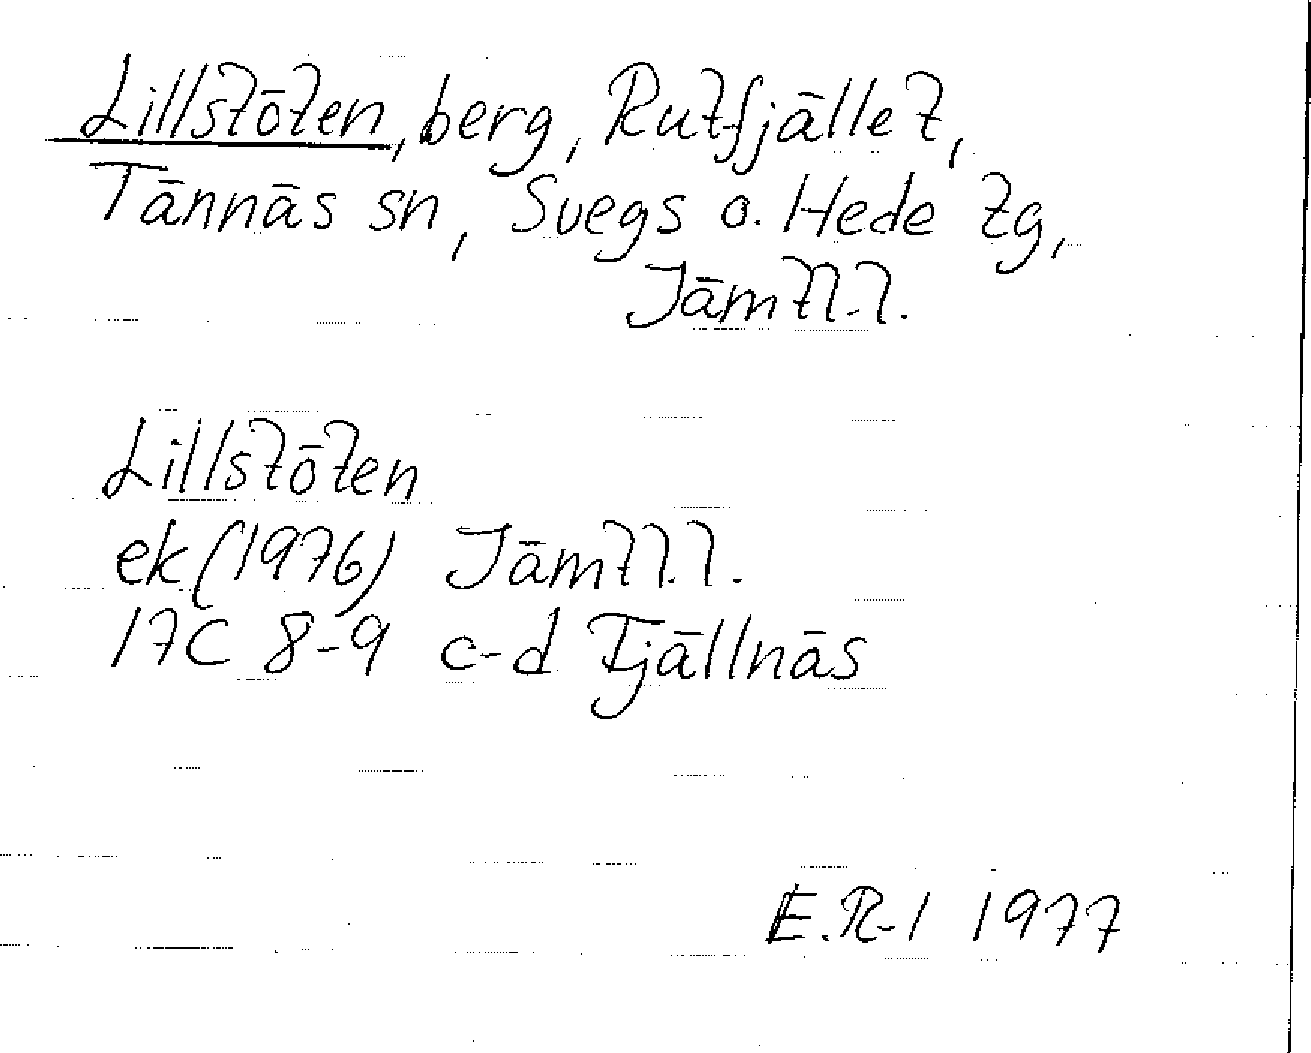 Lillstöten, berg, Rutfjället,
Tännäs sn, Svegs o. Hede tg,
Jämtl. l.
Lillstöten
ek (1976) Jämtl. l.
17C 8-9 c-d Fjällnäs
E.R-l 1977